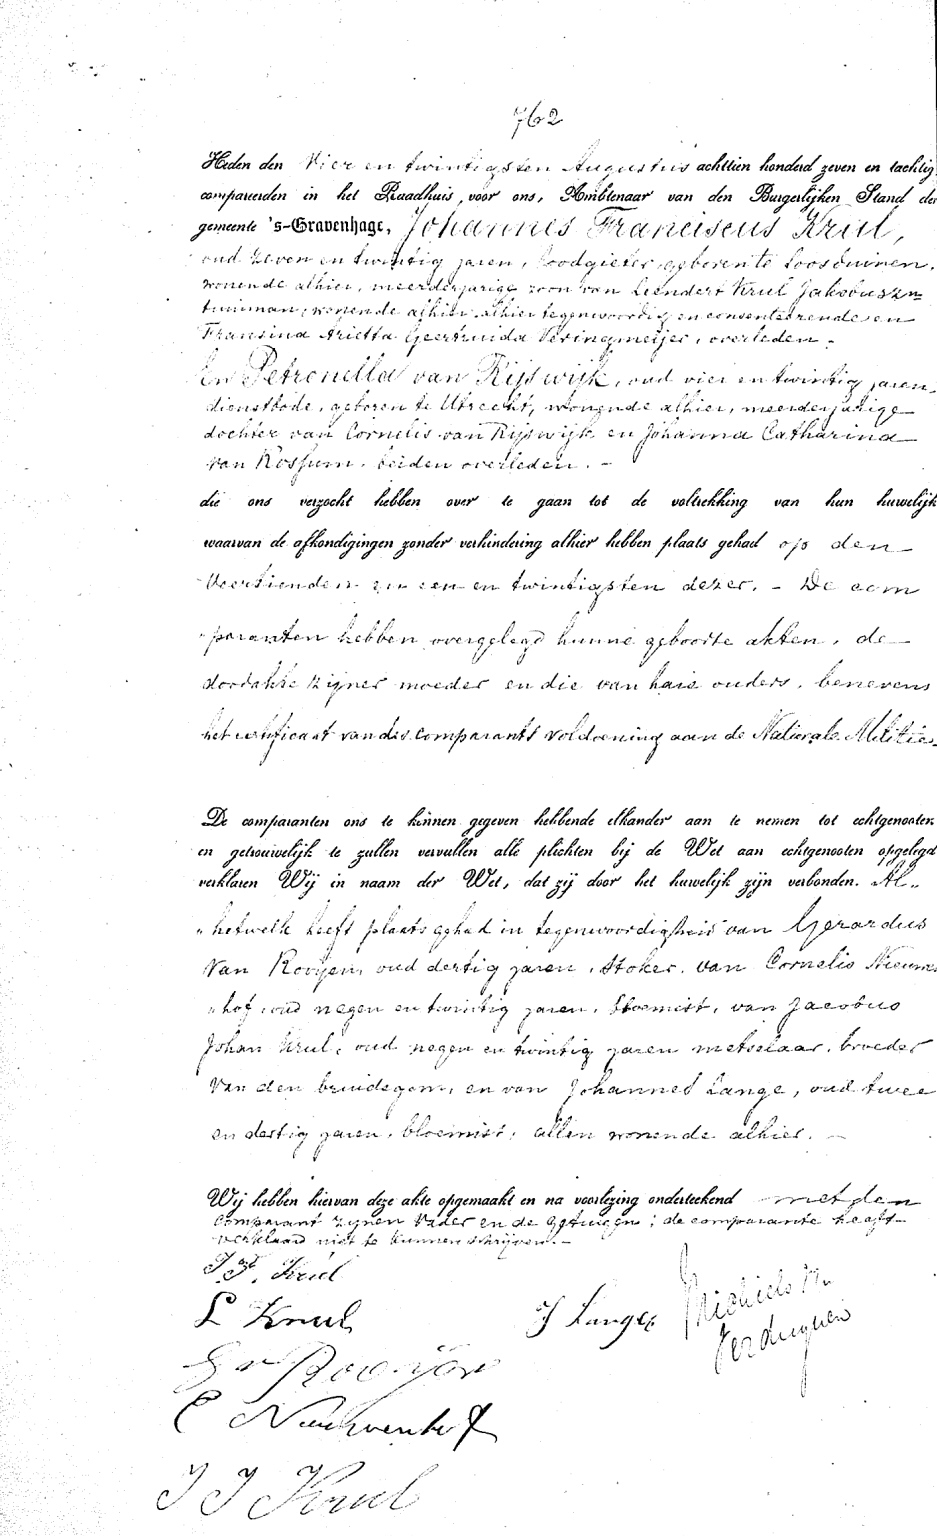 762
Heden den Vier en twintigsten Augustus achttien honderd zeven en tachtig
compareerden in het Raadhuis, voor ons, Ambtenaar van den Burgerlijken Stand der
gemeente 's-Gravenhage, Johannes Franciscus Krul,
oud zeven en twintig jaren, loodgieter, geboren te Loosduinen,
wonende alhier, meerderjarige zoon van Leendert Krul Jakobuszn
tuinman, wonende alhier, alhier tegenwoordig en consenteerende en
Fransina Arietta Geertruida Peringmeijer, overleden.
En Petronella van Rijswijk, oud vier en twintig jaren
dienstbode, geboren te Utrecht, wonende alhier, meerderjarige
dochter van Cornelis van Rijswijk en Johanna Catharina
van Rossum, beiden overleden. -
die ons verzocht hebben over te gaan tot de voltrekking van hun huwelijk
waarvan de afkondigingen zonder verhindering alhier hebben plaats gehad op den
Veertienden en een en twintigsten dezer. - De com
paranten hebben overgelegd hunne geboorte akten, de
doodakte zijner moeder en die van hare ouders, benevens
het certificaat van des comparants voldoening aan de Nationale Militie
De comparanten ons te kennen gegeven hebbende elkander aan te nemen tot echtgenooten
en getrouwelijk te zullen vervullen alle plichten bij de Wet aan echtgenooten opgelegd
verklaren Wij in naam der Wet, dat zij door het huwelijk zijn verbonden. Al„
„hetwelk heeft plaats gehad in tegenwoordigheid van Gerardus
van Rooijen, oud dertig jaren, stoker, van Cornelis Nieuwen
„hof, oud negen en twintig jaren, bloemist, van Jacobus
Johan Krul, oud negen en twintig jaren metselaar, broeder
van den bruidegom, en van Johannes Lange, oud twee
en dertig jaren, bloemist, allen wonende alhier. -
Wij hebben hiervan deze akte opgemaakt en na voorlezing onderteekend met den
comparant zijnen vader en de getuigen; de comparante heeft
verklaard niet te kunnen schrijven. -
J. F. Krul
L Krul
J Lange
G v Rooijen
C Nieuwenhof
J J Krul